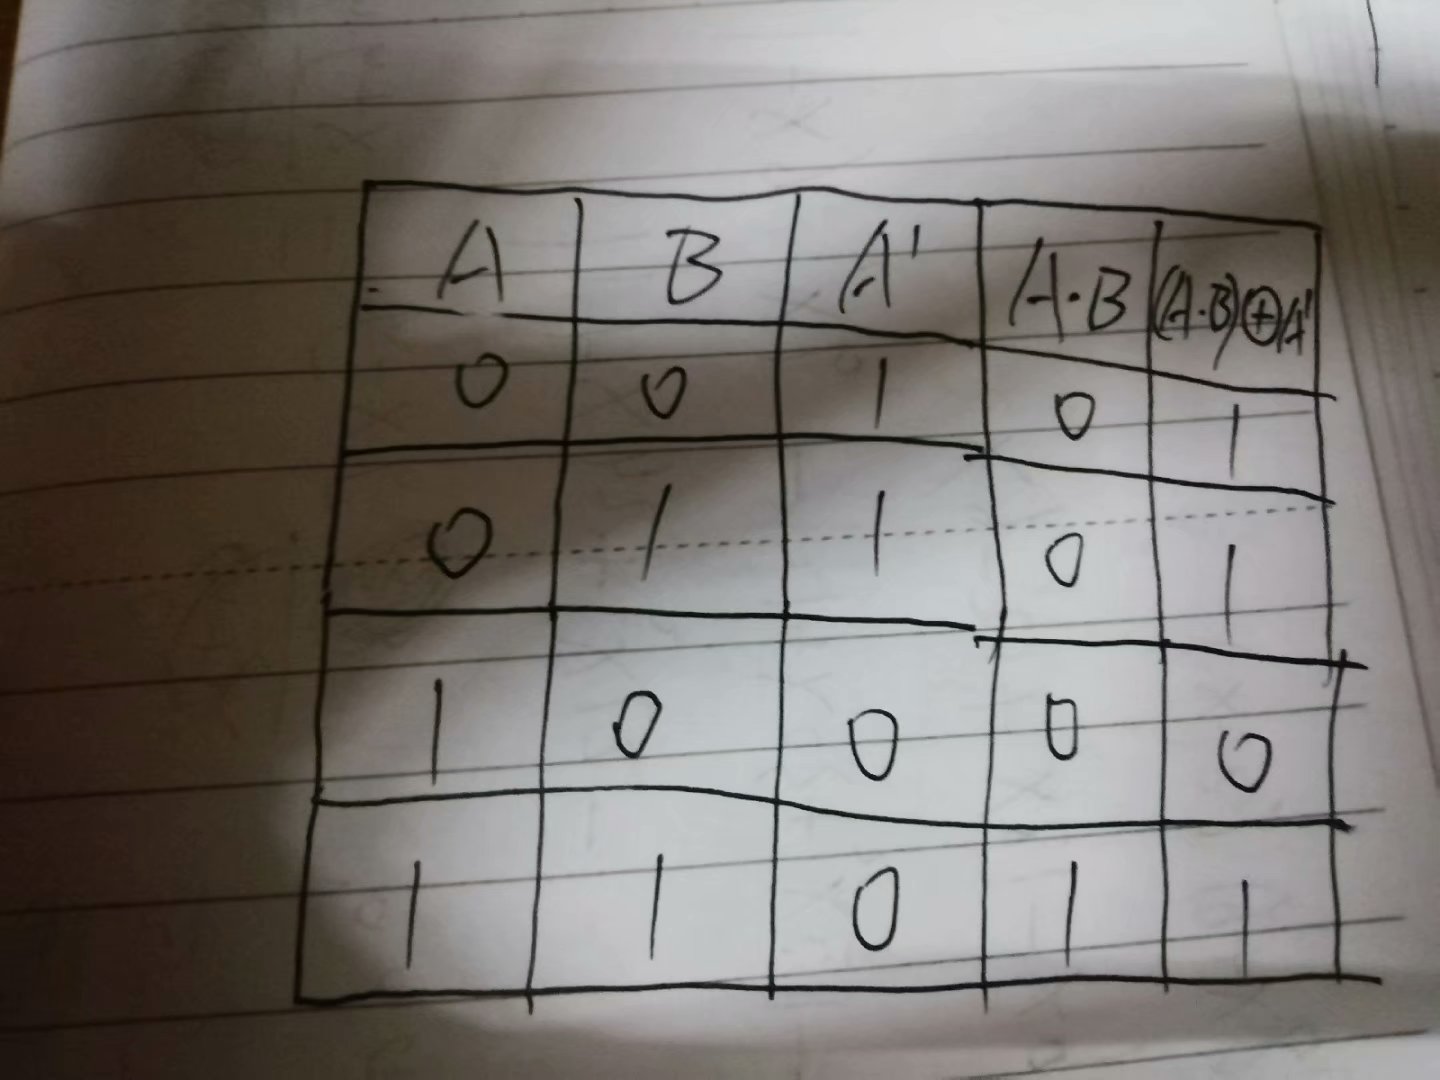 A B A' A·B (A·B)⊕A'
0 0 1 0 1
0 1 1 0 1
1 0 0 0 0
1 1 0 1 1